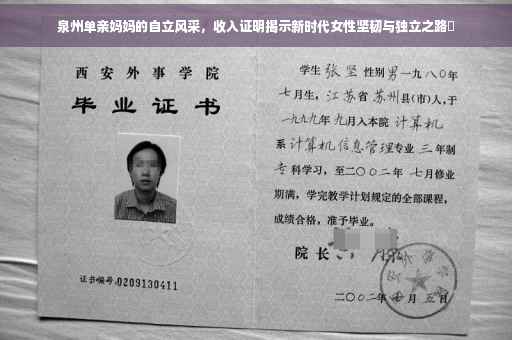 泉州单亲妈妈的自立风采，收入证明揭示新时代女性坚韧与独立之路
西安外事学院
毕业证书
证书编号:0209130411
学生 张坚 性别 男 一九八〇年
七月生, 江苏省 苏州 县(市)人, 于
一九九九年 九月入本院 计算机
系 计算机信息管理 专业 三 年制
专 科学习, 至二〇〇二年 七月修业
期满, 学完教学计划规定的全部课程,
成绩合格, 准予毕业。
院长
外事学院
二〇〇二年 七月 五日